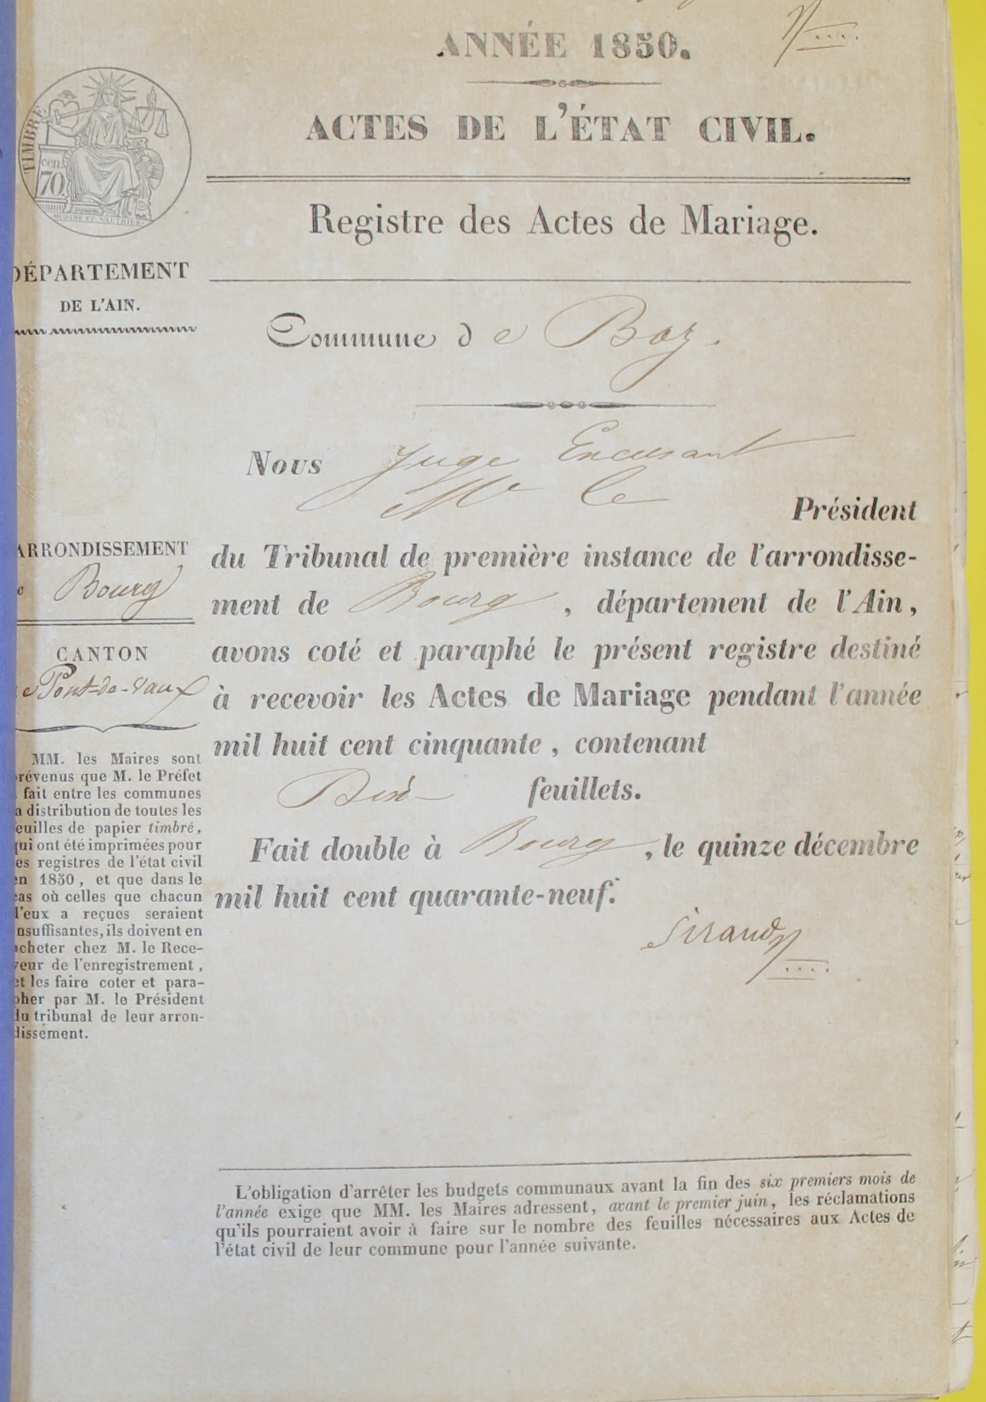 ANNÉE 1850.
ACTES DE L'ÉTAT CIVIL.
Registre des Actes de Mariage.
TIMBRE
cen.
70
DÉPARTEMENT
DE L'AIN.
Commune de Boz.
Nous Juge
Mr le
Président
du Tribunal de première instance de l'arrondisse-
ment de Bourg, département de l'Ain,
avons coté et paraphé le présent registre destiné
à recevoir les Actes de Mariage pendant l'année
mil huit cent cinquante, contenant
feuillets.
Fait double à Bourg, le quinze décembre
mil huit cent quarante-neuf.
Sirand
ARRONDISSEMENT
e Bourg
CANTON
e Pont-de-Vaux
MM. les Maires sont
prévenus que M. le Préfet
fait entre les communes
la distribution de toutes les
feuilles de papier timbré,
qui ont été imprimées pour
les registres de l'état civil
en 1850, et que dans le
cas où celles que chacun
d'eux a reçues seraient
insuffisantes, ils doivent en
acheter chez M. le Rece-
veur de l'enregistrement,
et les faire coter et para-
pher par M. le Président
du tribunal de leur arron-
dissement.
L'obligation d'arrêter les budgets communaux avant la fin des six premiers mois de
l'année exige que MM. les Maires adressent, avant le premier juin, les réclamations
qu'ils pourraient avoir à faire sur le nombre des feuilles nécessaires aux Actes de
l'état civil de leur commune pour l'année suivante.